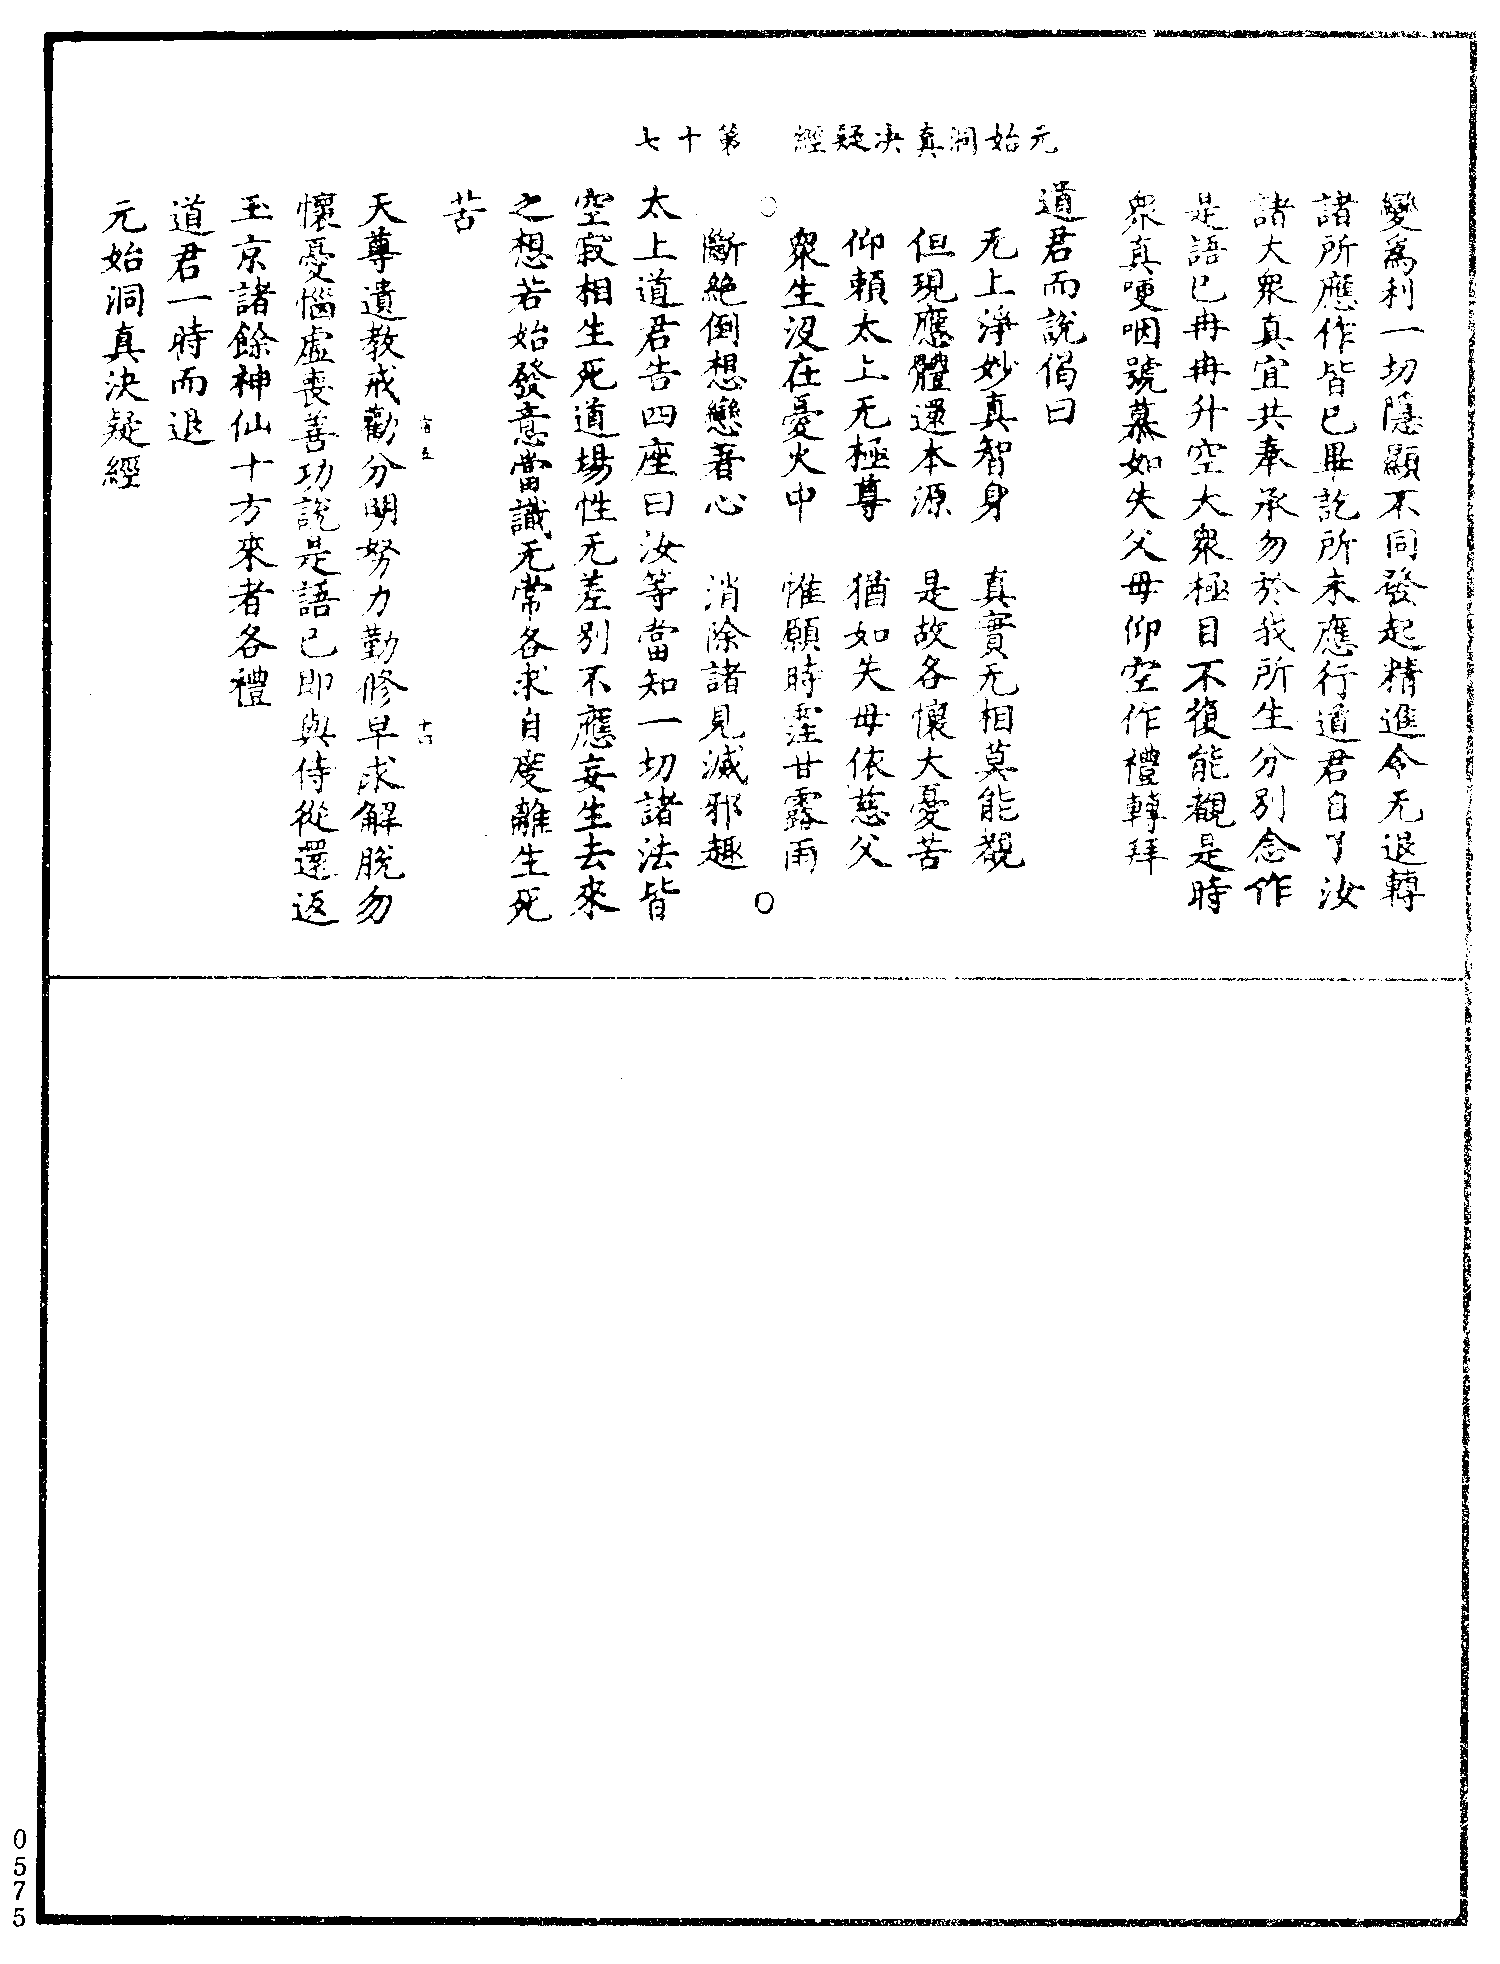 元始洞真決疑經　第十七
變為利一切隱顯不同發起精進令无退轉
諸所應作皆已畢訖所未應行道君自了汝
諸大眾真宜共奉承勿於我所生分別念作
是語已冉冉升空大眾極目不復能覩是時
眾真哽咽號慕如失父母仰空作禮轉拜
道君而說偈曰
无上淨妙真智身　真實无相莫能覩
但現應體還本源　是故各懷大憂苦
仰賴太上无極尊　猶如失母依慈父
眾生沒在憂火中　惟願時霔甘露雨
斷絕倒想戀著心　消除諸見滅邪趣
太上道君告四座曰汝等當知一切諸法皆
空寂相生死道場性无差別不應妄生去來
之想若始發意當識无常各求自度離生死
苦
天尊遺教戒勸分明努力勤修早求解脫勿
懷憂惱虛喪善功說是語已即與侍從還返
玉京諸餘神仙十方來者各禮
道君一時而退
元始洞真決疑經
0575